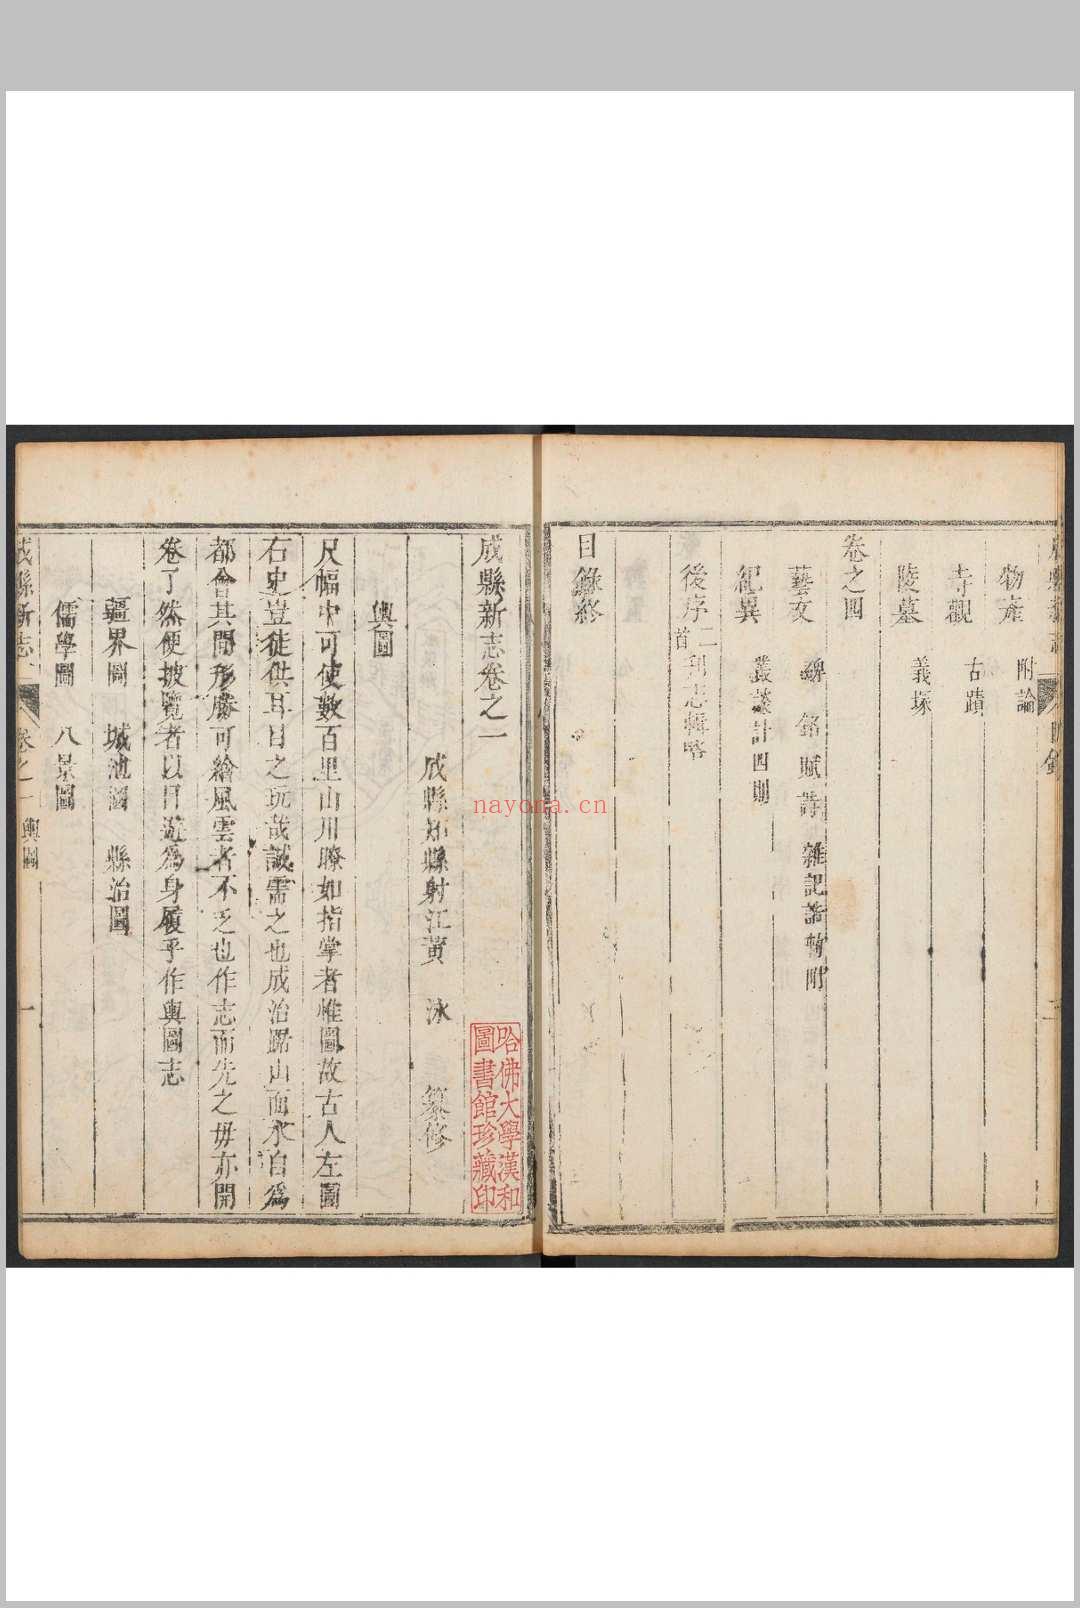 物産 附論
寺觀 古蹟
陵墓 義塚
卷之四
藝文 碑 銘 賦 詩 雜記 附
紀異 叢談計四則
後序二首 刊志輯畧
目錄終
成縣新志卷之一
成縣知縣射江黃 泳 纂修
輿圖
尺幅中可使數百里山川瞭如指掌者惟圖故古人左圖
右史豈徒供耳目之玩哉誠需之也成治踞山面水自爲
都會其間形勝可繪風雲者不乏也作志而先之毋亦開
卷了然便披覽者以目遊爲身履乎作輿圖志
疆界圖 城池圖 縣治圖
儒學圖 八景圖
成縣新志 卷之一 輿圖 一
哈佛大學漢和
圖書館珍藏印
nayona.cn